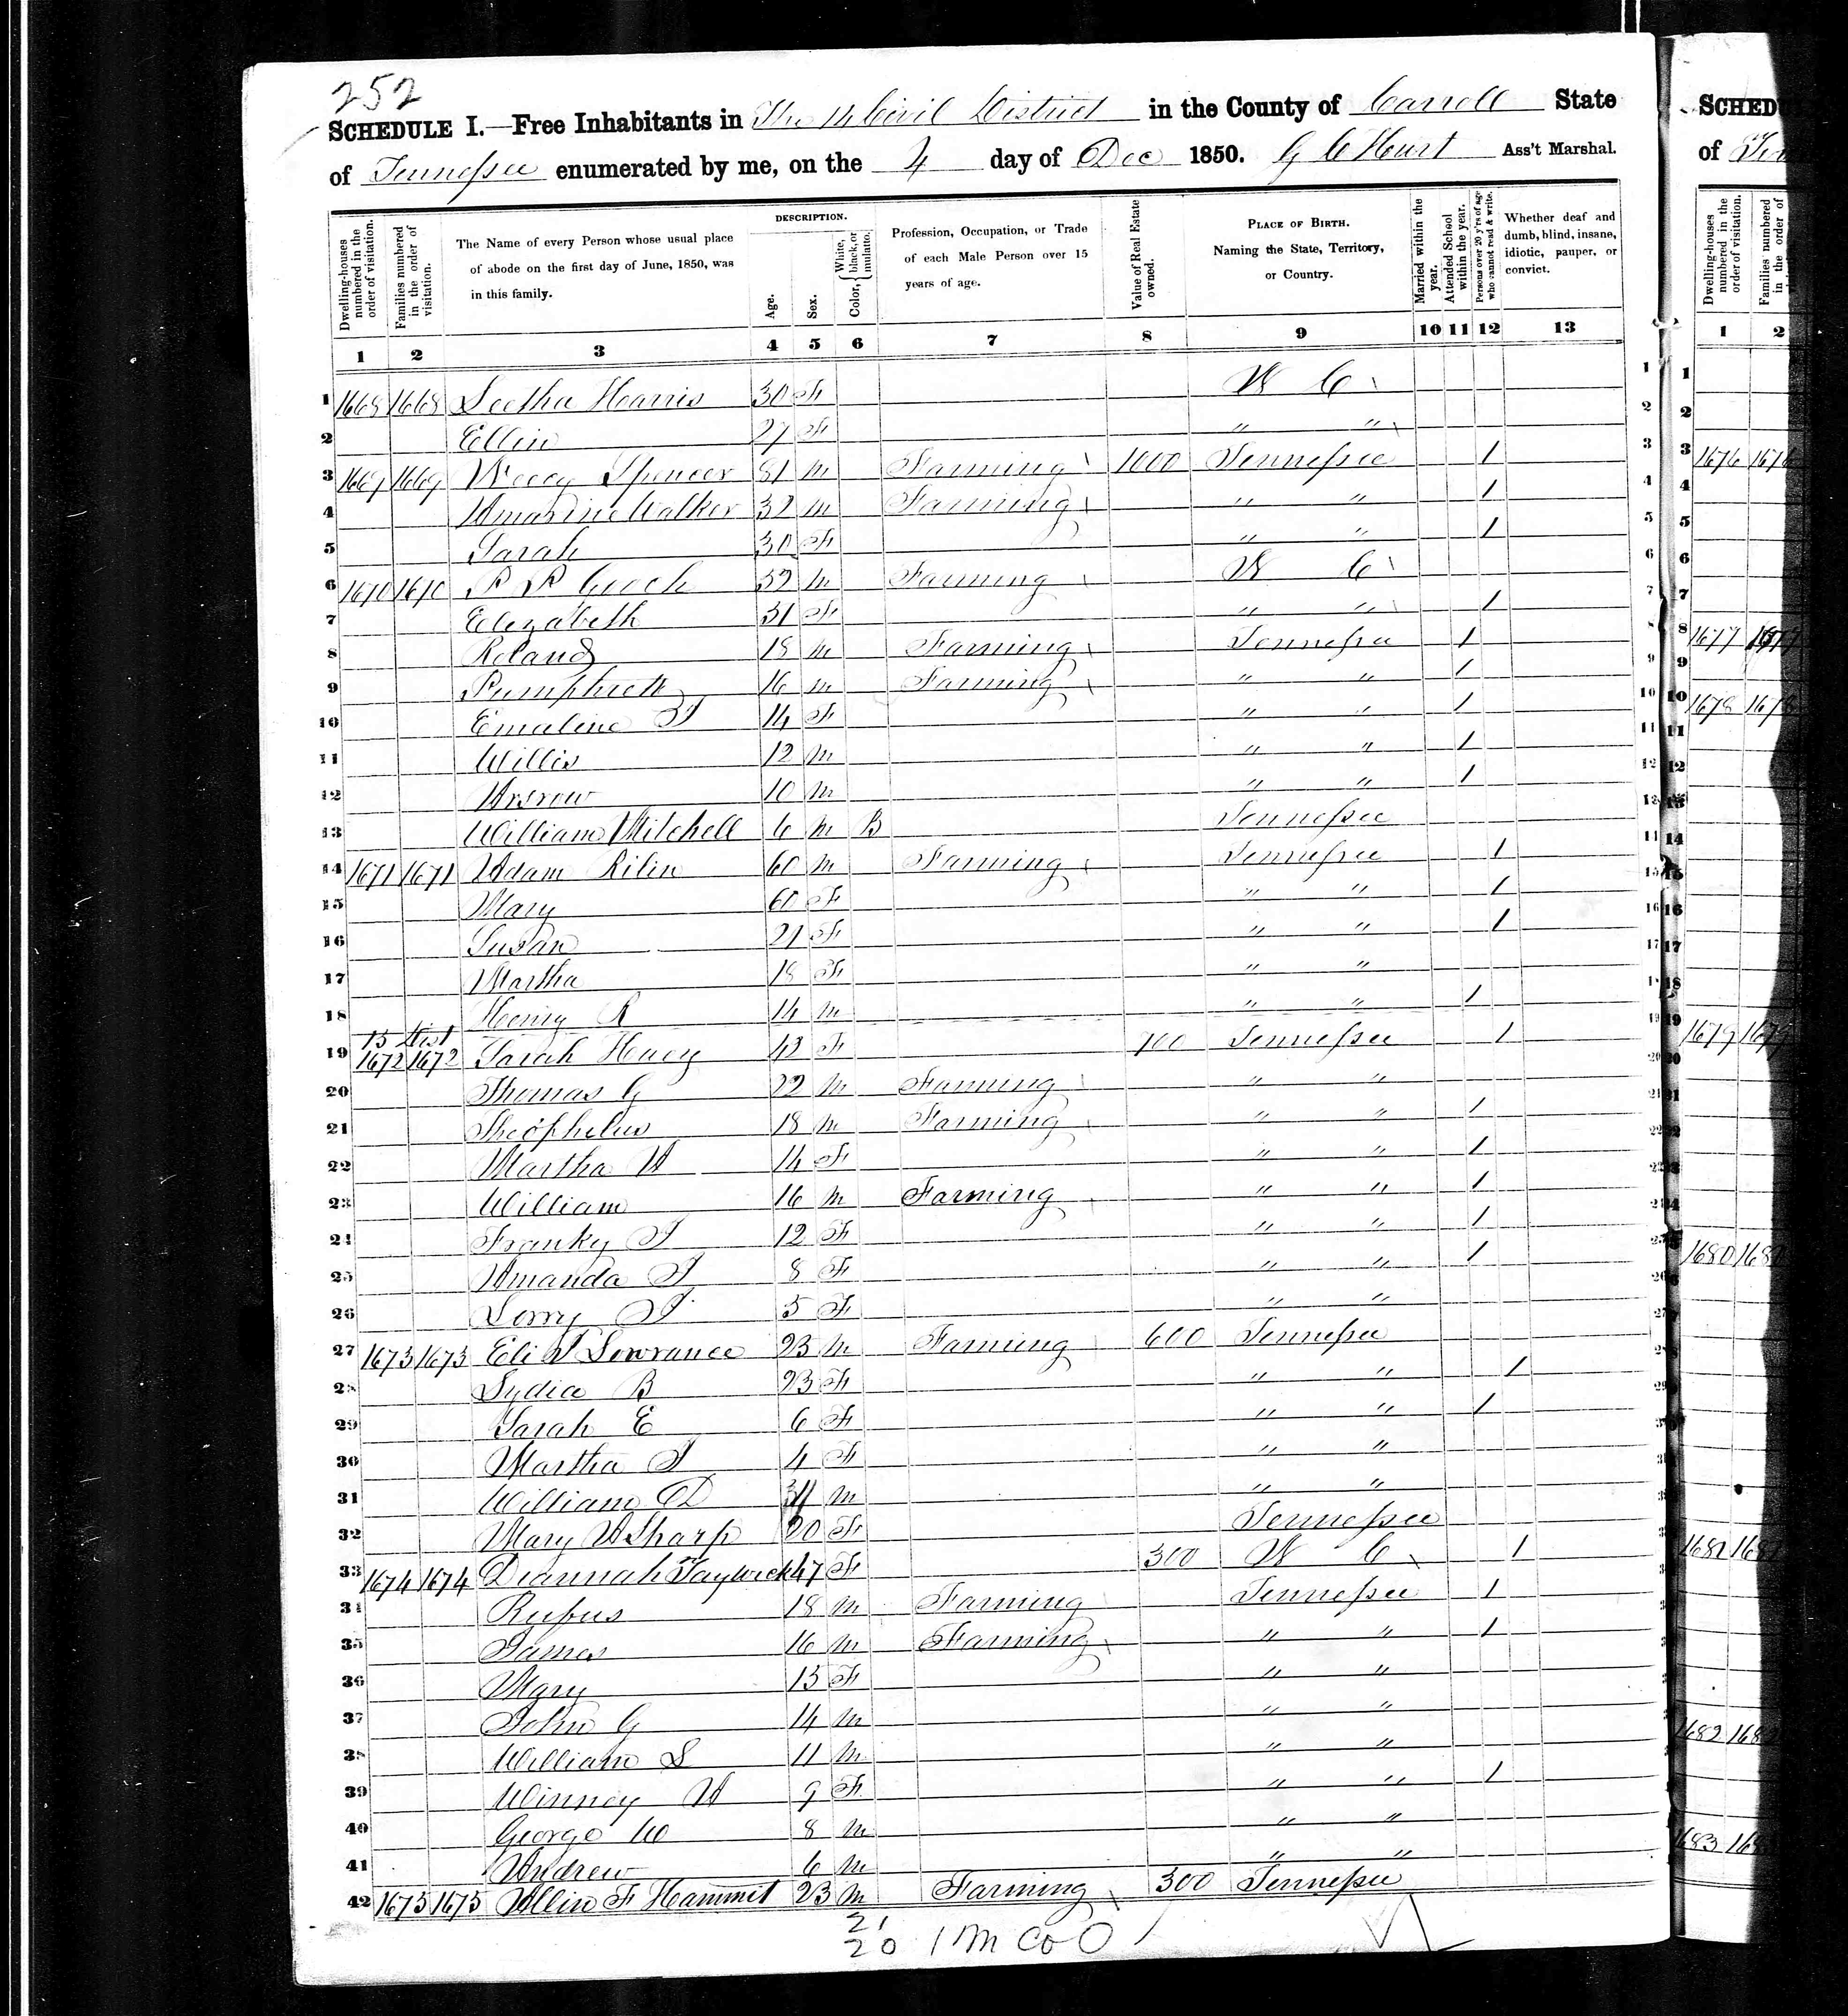 252
SCHEDULE I.—Free Inhabitants in The 14 Civil District in the County of Carroll State
of Tennessee enumerated by me, on the 4 day of Dec 1850. G C Hurt Ass't Marshal.
Dwelling-houses numbered in the order of visitation.
Families numbered in the order of visitation.
The Name of every Person whose usual place of abode on the first day of June, 1850, was in this family.
DESCRIPTION.
Age.
Sex.
Color, { White, black, or mulatto.
Profession, Occupation, or Trade of each Male Person over 15 years of age.
Value of Real Estate owned.
PLACE OF BIRTH. Naming the State, Territory, or Country.
Married within the year.
Attended School within the year.
Persons over 20 y'rs of age who cannot read & write.
Whether deaf and dumb, blind, insane, idiotic, pauper, or convict.
1 2 3 4 5 6 7 8 9 10 11 12 13
1 1668 1668 Harris 30 F N C
2 Ellin 27 F " "
3 1669 1669 Spencer 81 M Farming 1000 Tennessee 1
4 Walker 32 M Farming " " 1
5 Sarah 30 F " " 1
6 1670 1670 R R Gooch 52 M Farming N C
7 Elezabeth 31 F " " 1
8 Roland 18 M Farming Tennessee 1
9 Pumphrett 16 M Farming " " 1
10 Emaline J 14 F " " 1
11 Willis 12 M " " 1
12 10 M " " 1
13 William Mitchell 6 M B Tennessee
14 1671 1671 Adam Rilin 60 M Farming Tennessee 1
15 Mary 60 F " " 1
16 Susan 21 F " " 1
17 Martha 18 F " "
18 Henry R 14 M " " 1
15 Dist
19 1672 1672 Sarah 43 F 700 Tennessee 1
20 Thomas G 22 M Farming " "
21 Theophelus 18 M Farming " " 1
22 Martha A 14 F " " 1
23 William 16 M Farming " " 1
24 Franky J 12 F " " 1
25 Amanda J 8 F " " 1
26 J 5 F " "
27 1673 1673 Eli J Lowrance 23 M Farming 600 Tennessee
28 Lydia B 23 F " " 1
29 Sarah E 6 F " " 1
30 Martha J 4 F " "
31 William D M " "
32 Mary A Sharp 20 F Tennessee
33 1674 1674 Diannah Taywick 47 F 300 N C 1
34 Rufus 18 M Farming Tennessee 1
35 James 16 M Farming " " 1
36 Mary 15 F " "
37 John G 14 M " "
38 William L 11 M " "
39 Winney A 9 F " " 1
40 George W 8 M " "
41 Andrew 6 M " "
42 1675 1675 Allin F Hammit 23 M Farming 300 Tennessee
21
20 1 M Co O
SCHEDU
of Ten
Dwelling-houses numbered in the order of visitation.
Families numbered in the order of
1 2
1676 1676
1677 1677
1678 1678
1679 1679
1680 168
1681 168
1682 168
1683 168